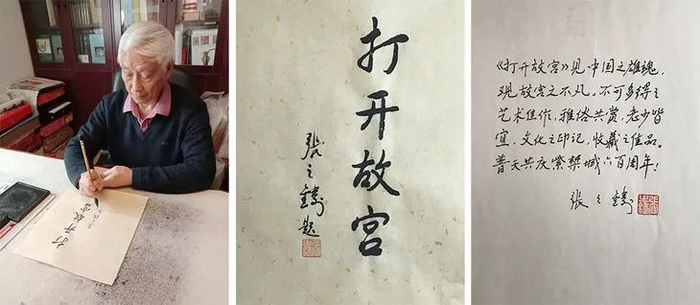 打开故宫
打开故宫
张之铸题
《打开故宫》见中国之雄魂,
观故宫之不凡。不可多得之
艺术佳作,雅俗共赏,老少皆
宜,文化之印记,收藏之佳品。
普天共庆紫禁城六百周年!
张之铸